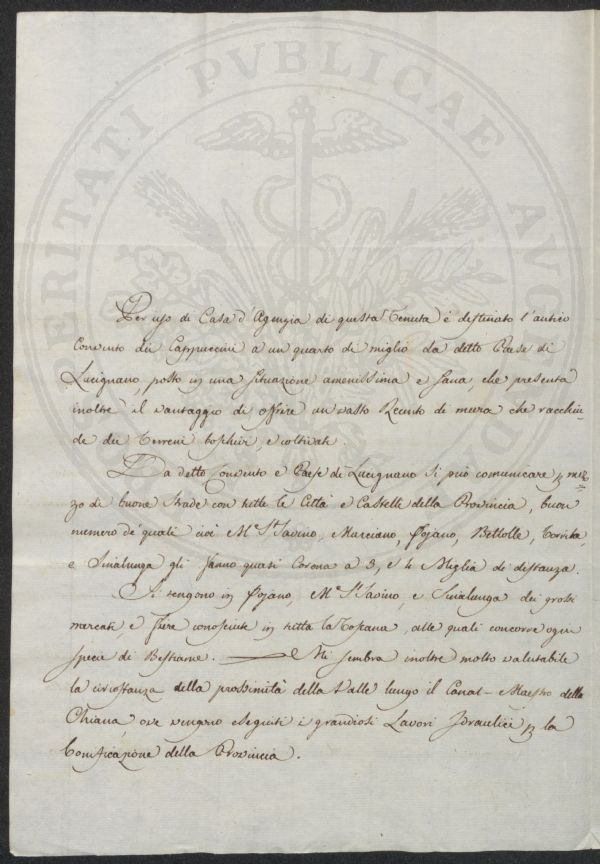 PROSPERITATI PVBLICAE AVGENDAE
Per uso di Casa d'Agenzia di questa Tenuta è destinato l'antico
Convento dei Cappuccini a un quarto di miglio da detto Paese di
Lucignano, posto in una situazione amenissima e sana, che presenta
inoltre il vantaggio di offrire un vasto Recinto di mura che racchiu-
de dei Terreni boschivi, e coltivati.
Da detto Convento e Paese di Lucignano si può comunicare p mez-
zo di buone strade con tutte le Città e Castella della Provincia, buon
numero de' quali cioè Me. St. Savino, Marciano, Fojano, Bettolle, Torrita,
e Sinalunga gli fanno quasi Corona a 3, e 4 Miglia di distanza.
Si tengono in Fojano, Me. St. Savino, e Sinalunga dei grossi
mercati, e fiere conosciute in tutta la Toscana, alle quali concorre ogni
specie di Bestiame. — Mi sembra inoltre molto valutabile
la circostanza della prossimità della Valle lungo il Canal-Maestro della
Chiana, ove vengono eseguiti i grandiosi Lavori Idraulici p la
bonificazione della Provincia.